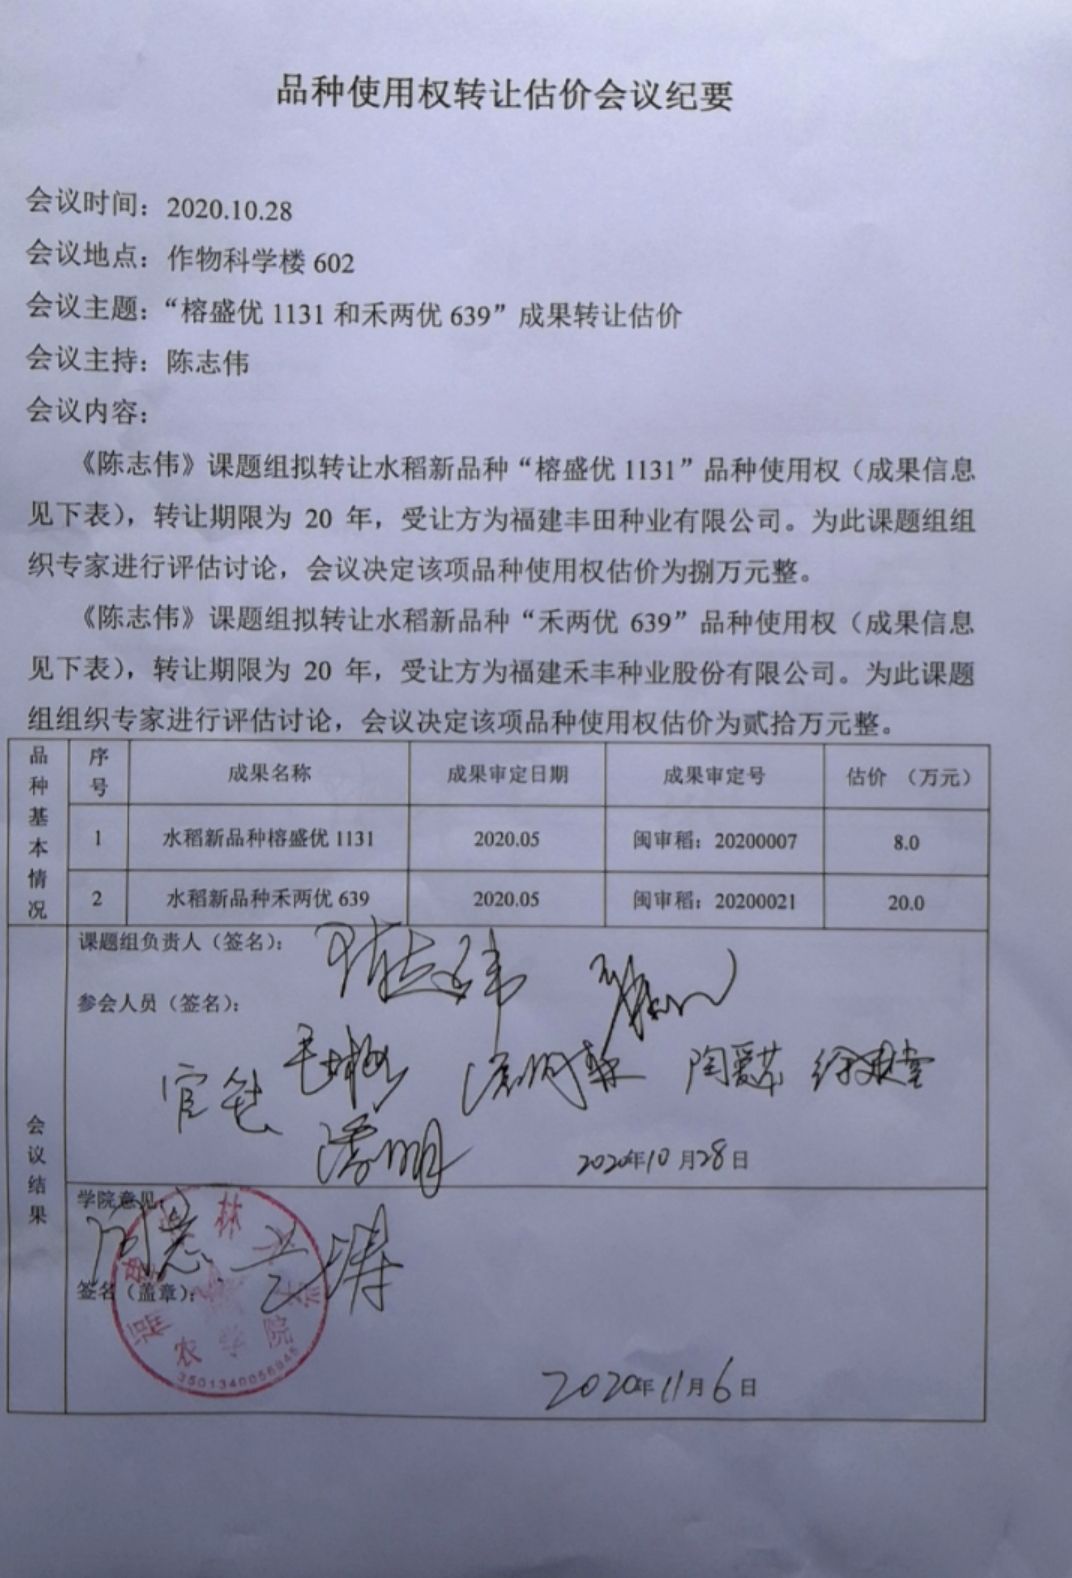 品种使用权转让估价会议纪要
会议时间：2020.10.28
会议地点：作物科学楼 602
会议主题：“榕盛优 1131 和禾两优 639”成果转让估价
会议主持：陈志伟
会议内容：
《陈志伟》课题组拟转让水稻新品种“榕盛优 1131”品种使用权（成果信息
见下表），转让期限为 20 年，受让方为福建丰田种业有限公司。为此课题组组
织专家进行评估讨论，会议决定该项品种使用权估价为捌万元整。
《陈志伟》课题组拟转让水稻新品种“禾两优 639”品种使用权（成果信息
见下表），转让期限为 20 年，受让方为福建禾丰种业股份有限公司。为此课题
组组织专家进行评估讨论，会议决定该项品种使用权估价为贰拾万元整。
品种基本情况
序号 成果名称 成果审定日期 成果审定号 估价 （万元）
1 水稻新品种榕盛优 1131 2020.05 闽审稻：20200007 8.0
2 水稻新品种禾两优 639 2020.05 闽审稻：20200021 20.0
会议结果
课题组负责人（签名）： 陈志伟
参会人员（签名）：
陶爱芬
2020年10月28日
学院意见
同意
签名（盖章）：
林
农学院
2020年11月6日